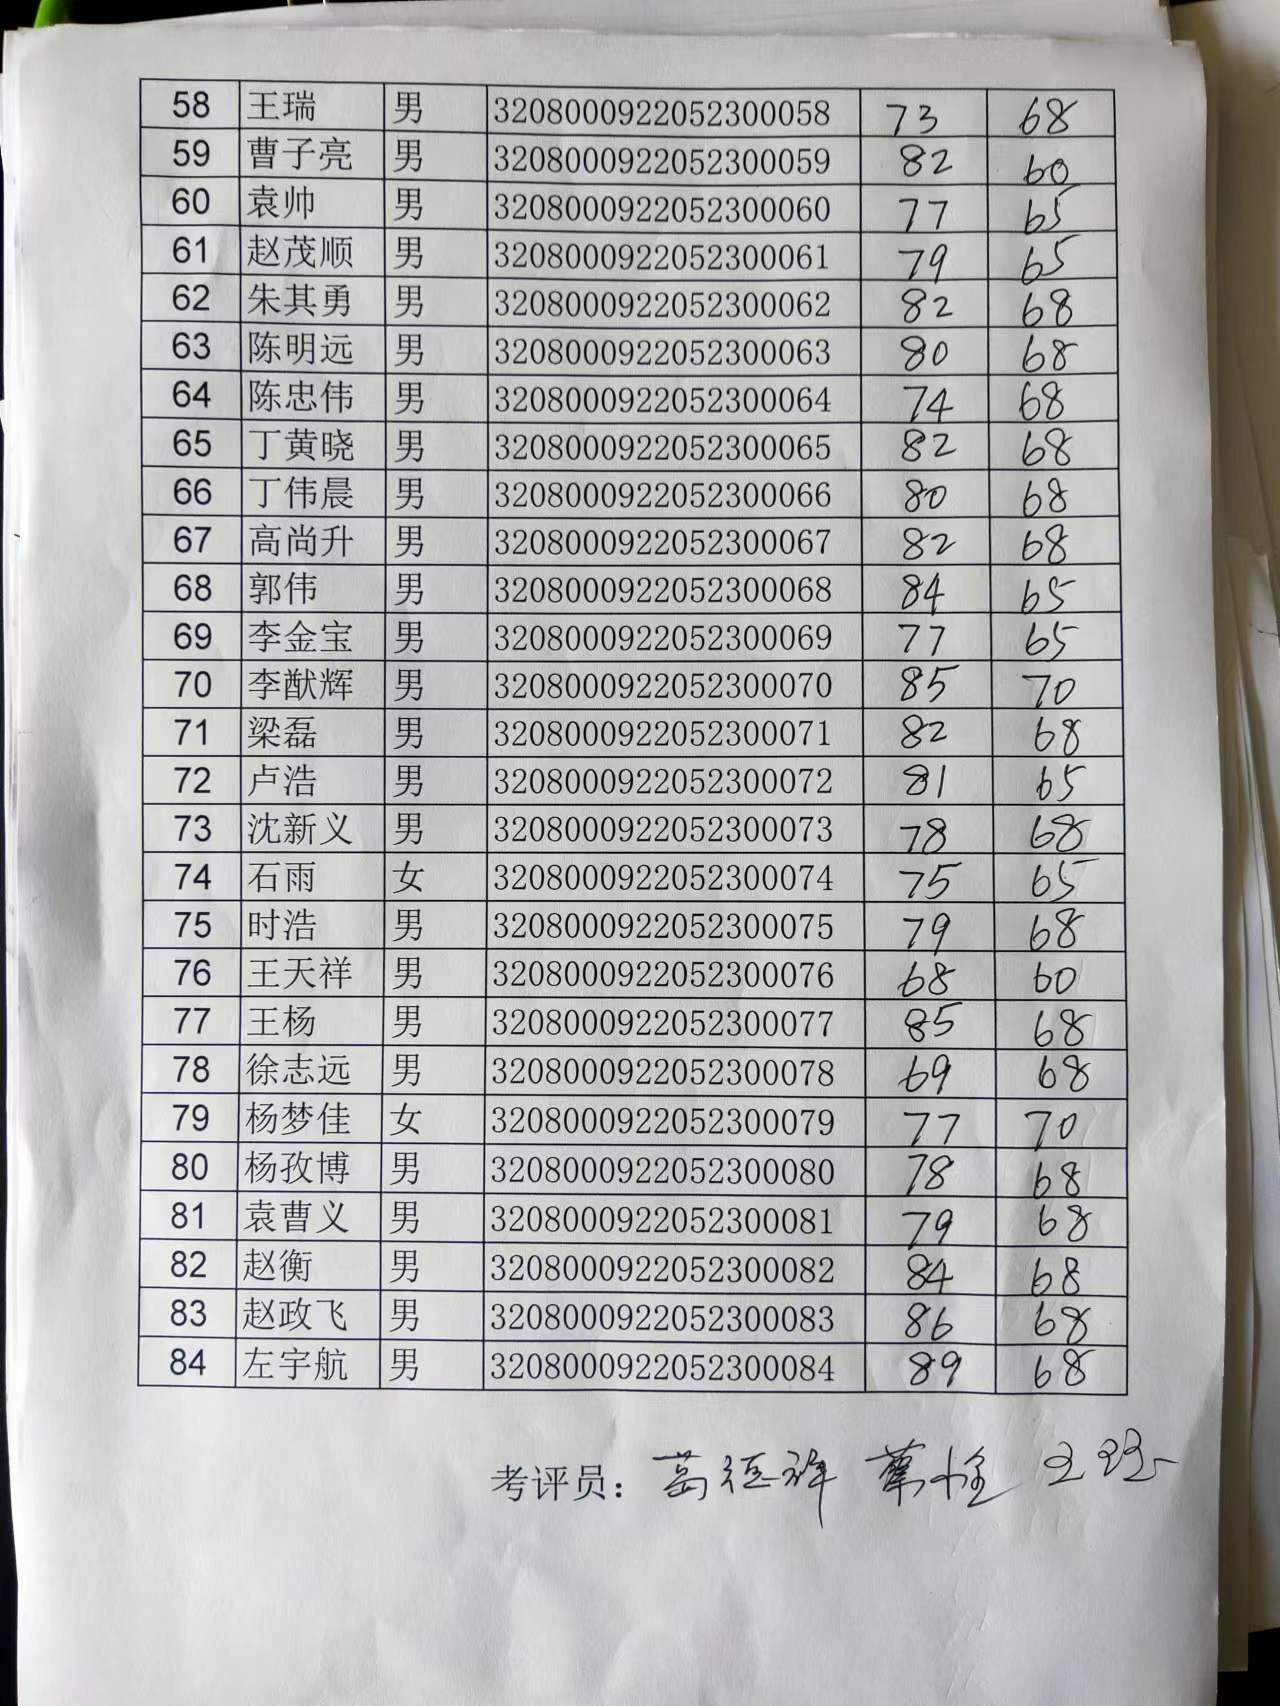 58 王瑞 男 3208000922052300058 73 68
59 曹子亮 男 3208000922052300059 82 60
60 袁帅 男 3208000922052300060 77 65
61 赵茂顺 男 3208000922052300061 79 65
62 朱其勇 男 3208000922052300062 82 68
63 陈明远 男 3208000922052300063 80 68
64 陈忠伟 男 3208000922052300064 74 68
65 丁黄晓 男 3208000922052300065 82 68
66 丁伟晨 男 3208000922052300066 80 68
67 高尚升 男 3208000922052300067 82 68
68 郭伟 男 3208000922052300068 84 65
69 李金宝 男 3208000922052300069 77 65
70 李猷辉 男 3208000922052300070 85 70
71 梁磊 男 3208000922052300071 82 68
72 卢浩 男 3208000922052300072 81 65
73 沈新义 男 3208000922052300073 78 68
74 石雨 女 3208000922052300074 75 65
75 时浩 男 3208000922052300075 79 68
76 王天祥 男 3208000922052300076 68 60
77 王杨 男 3208000922052300077 85 68
78 徐志远 男 3208000922052300078 69 68
79 杨梦佳 女 3208000922052300079 77 70
80 杨孜博 男 3208000922052300080 78 68
81 袁曹义 男 3208000922052300081 79 68
82 赵衡 男 3208000922052300082 84 68
83 赵政飞 男 3208000922052300083 86 68
84 左宇航 男 3208000922052300084 89 68
考评员：葛征祥